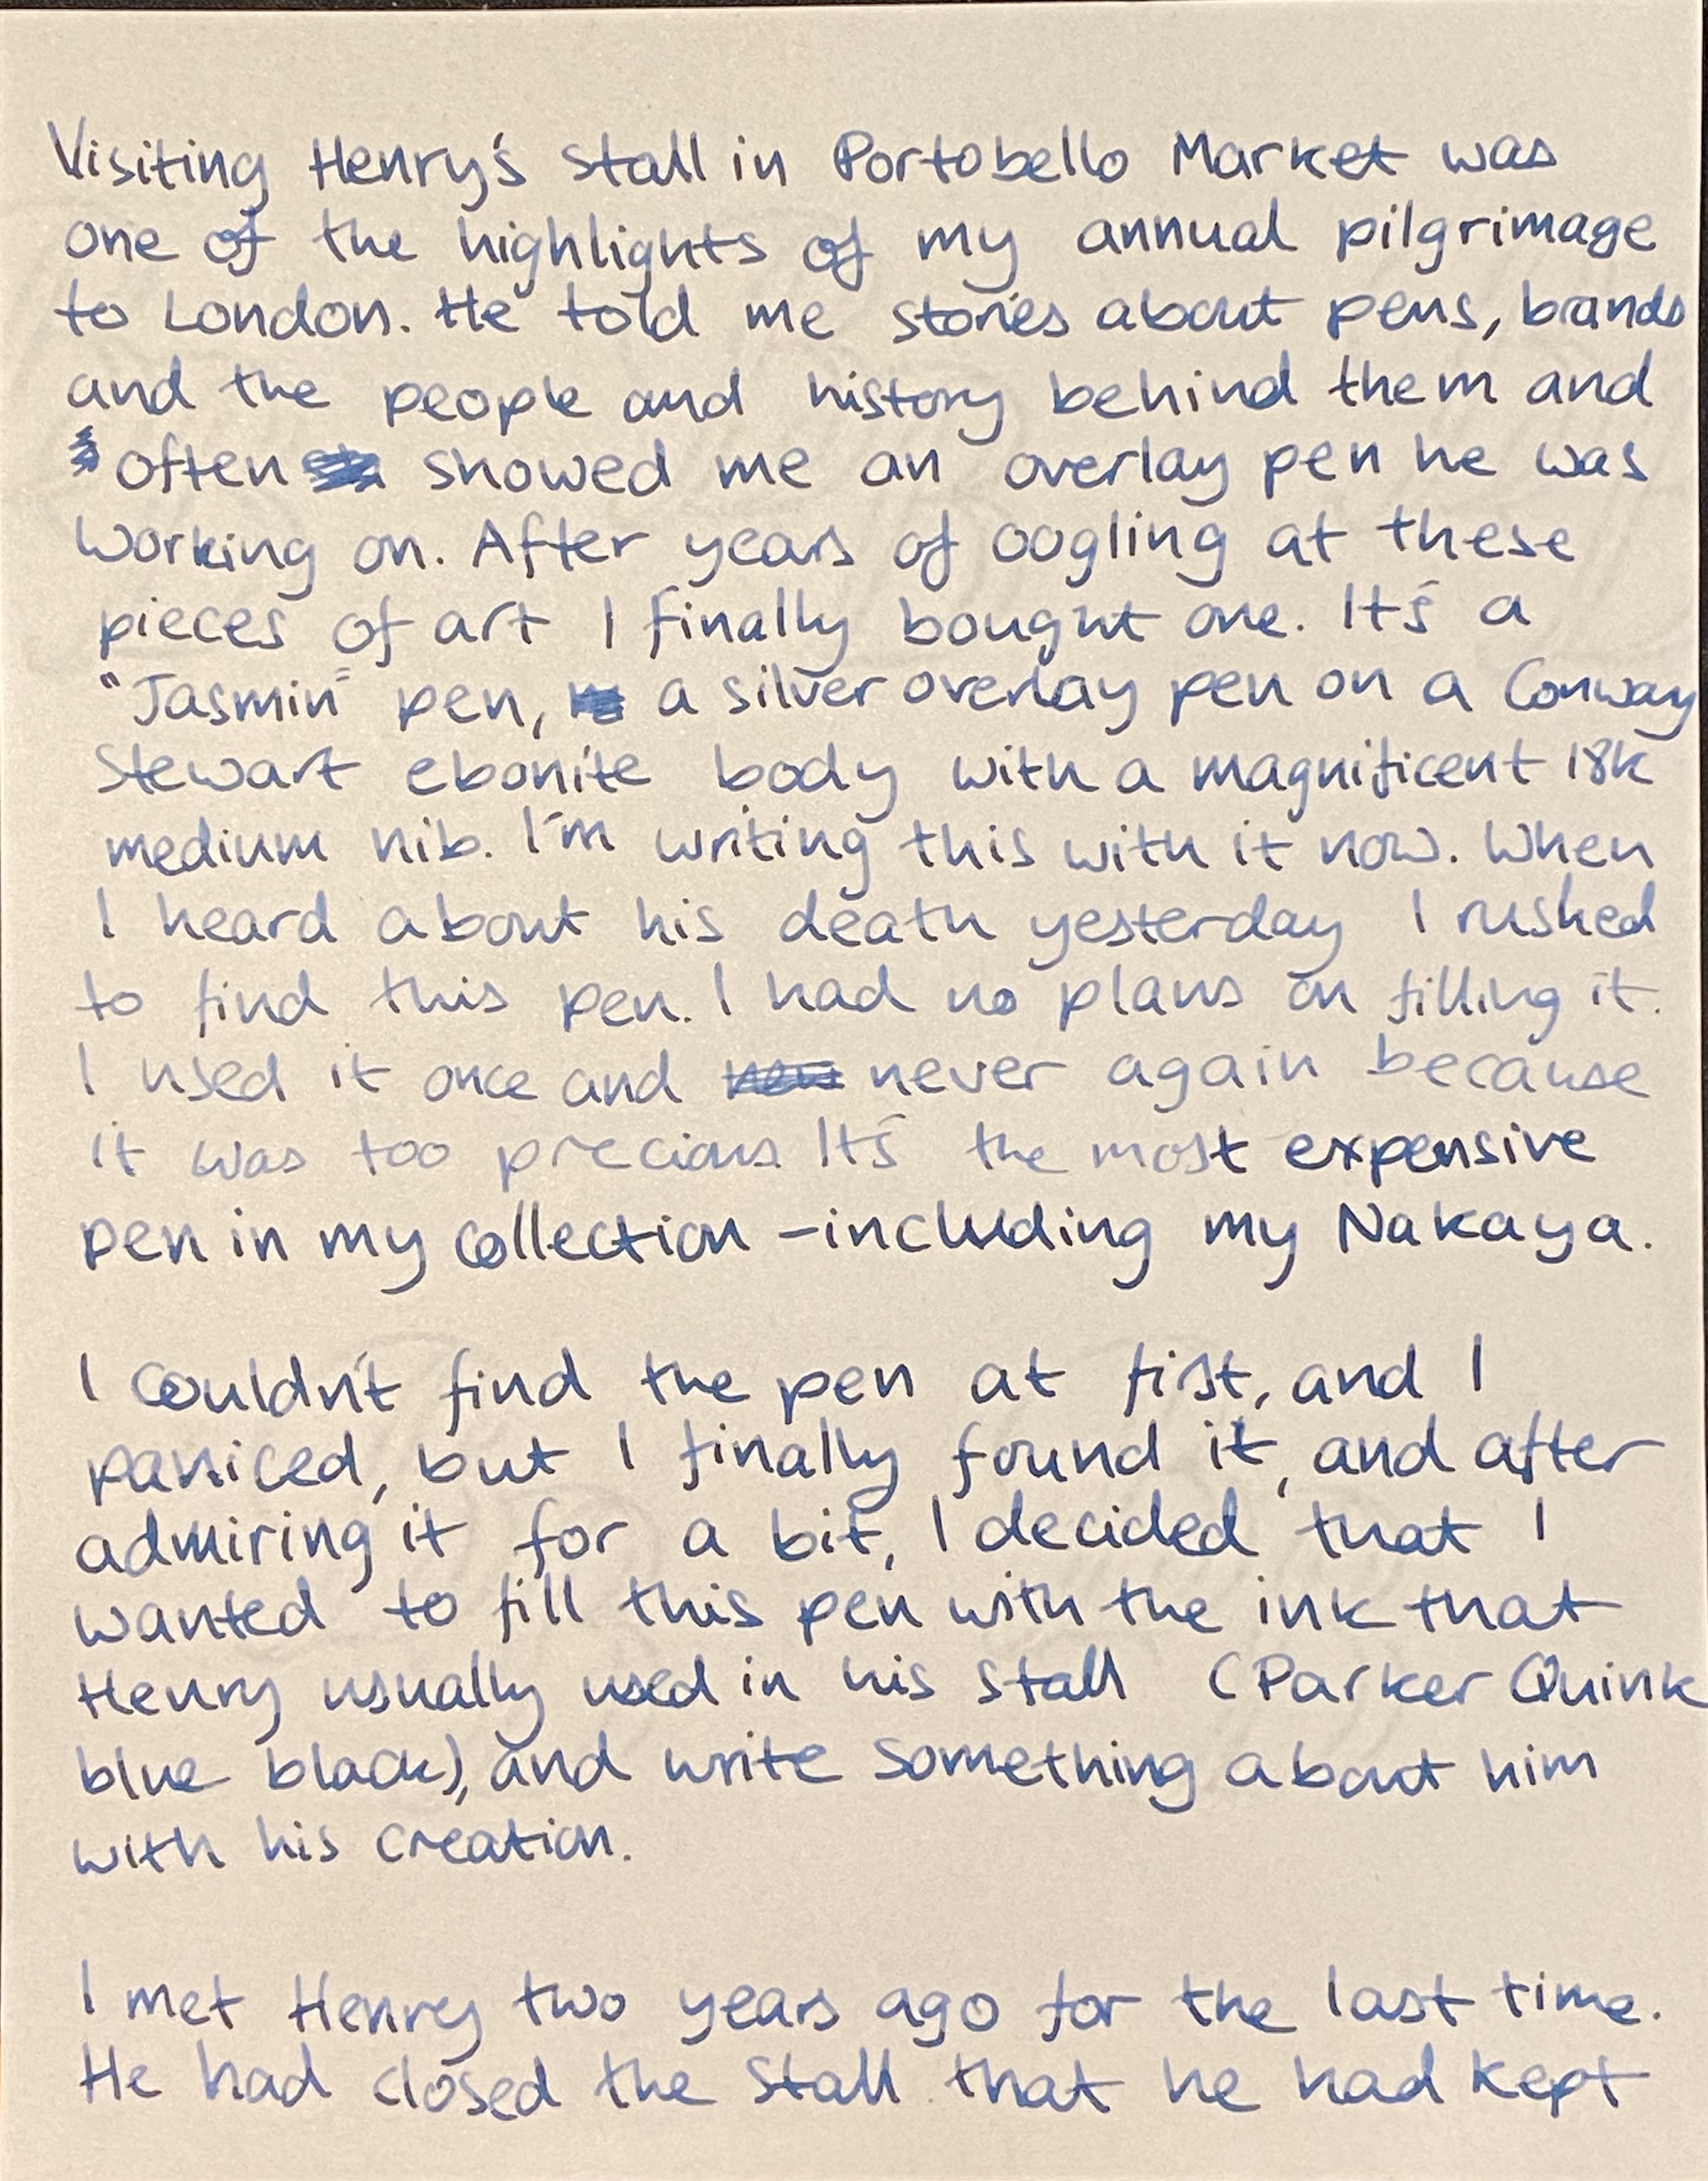 Visiting Henry's stall in Portobello Market was
one of the highlights of my annual pilgrimage
to London. He told me stories about pens, brands
and the people and history behind them and
often showed me an overlay pen he was
working on. After years of oogling at these
pieces of art I finally bought one. It's a
"Jasmin" pen, a silver overlay pen on a Conway
Stewart ebonite body with a magnificent 18k
medium nib. I'm writing this with it now. When
I heard about his death yesterday I rushed
to find this pen. I had no plans on filling it.
I used it once and never again because
it was too precious. It's the most expensive
pen in my collection - including my Nakaya.
I couldn't find the pen at first, and I
paniced, but I finally found it, and after
admiring it for a bit, I decided that I
wanted to fill this pen with the ink that
Henry usually used in his stall (Parker Quink
blue black), and write something about him
with his creation.
I met Henry two years ago for the last time.
He had closed the stall that he had kept